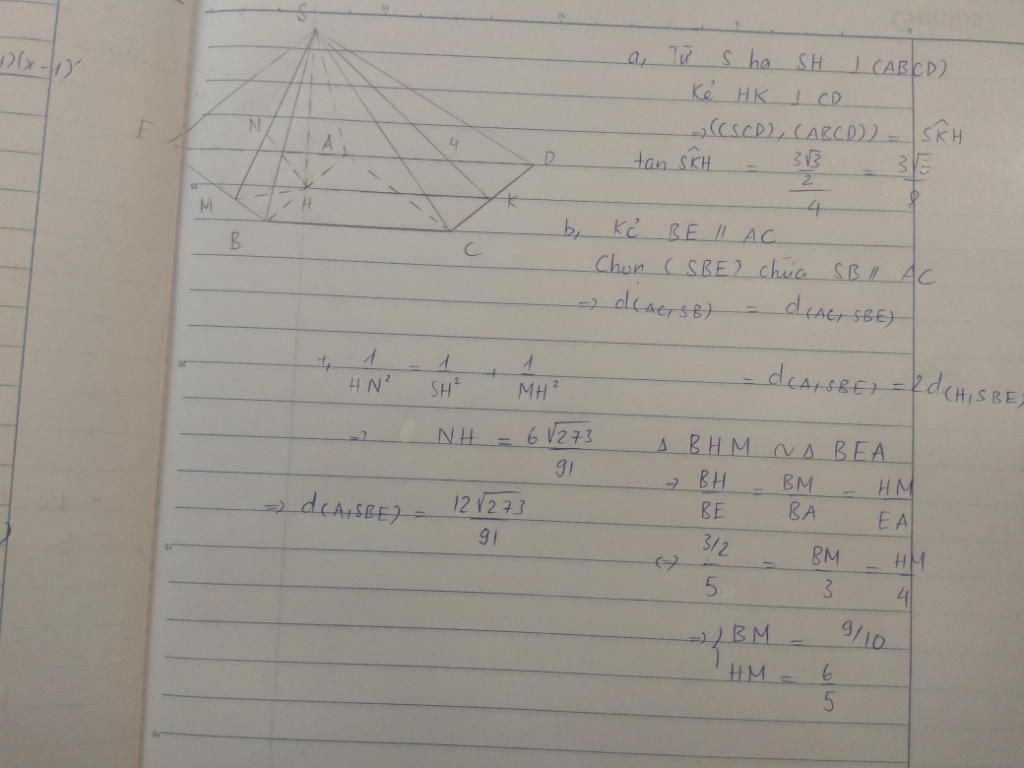 S
E
N
A
4
D
M
H
K
B
C
a, Từ S hạ SH ⊥ (ABCD)
Kẻ HK ⊥ CD
→ ((SCD), (ABCD)) = SK̂H
tan SK̂H = (3√3/2)/4 = 3√3/8
b, Kẻ BE // AC
Chọn (SBE) chứa SB // AC
=> d(AC, SB) = d(AC, SBE)
= d(A, SBE) = 2d(H, SBE)
+, 1/HN² = 1/SH² + 1/MH²
=> NH = 6√273/91
=> d(A, SBE) = 12√273/91
Δ BHM ~ Δ BEA
→ BH/BE = BM/BA = HM/EA
<-> (3/2)/5 = BM/3 = HM/4
=> { BM = 9/10
HM = 6/5